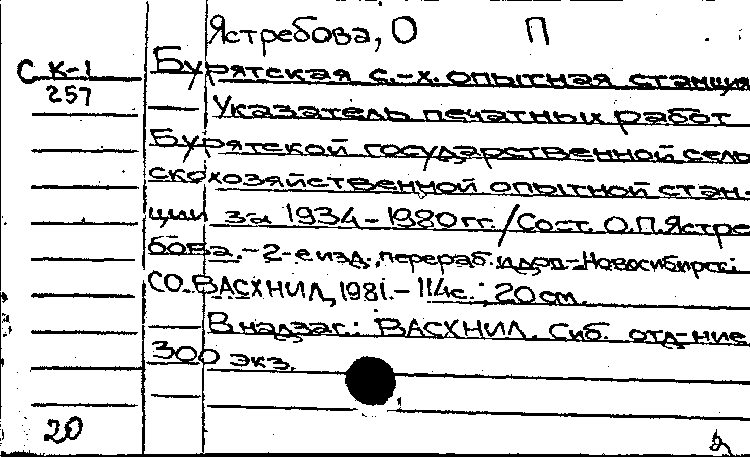 Ястребова, О П
С К-1 Бурятская с.-х. опытная станция
257 Указатель печатных работ
Бурятской государственной сель
скохозяйственной опытной стан-
ции за 1934-1980 гг. / Сост. О.П. Ястре
бова. - 2-е изд., перераб. и доп. - Новосибирск:
СО ВАСХНИЛ, 1981. - 114 с.; 20 см.
В надзаг.: ВАСХНИЛ. Сиб. отд-ние
300 экз.
20